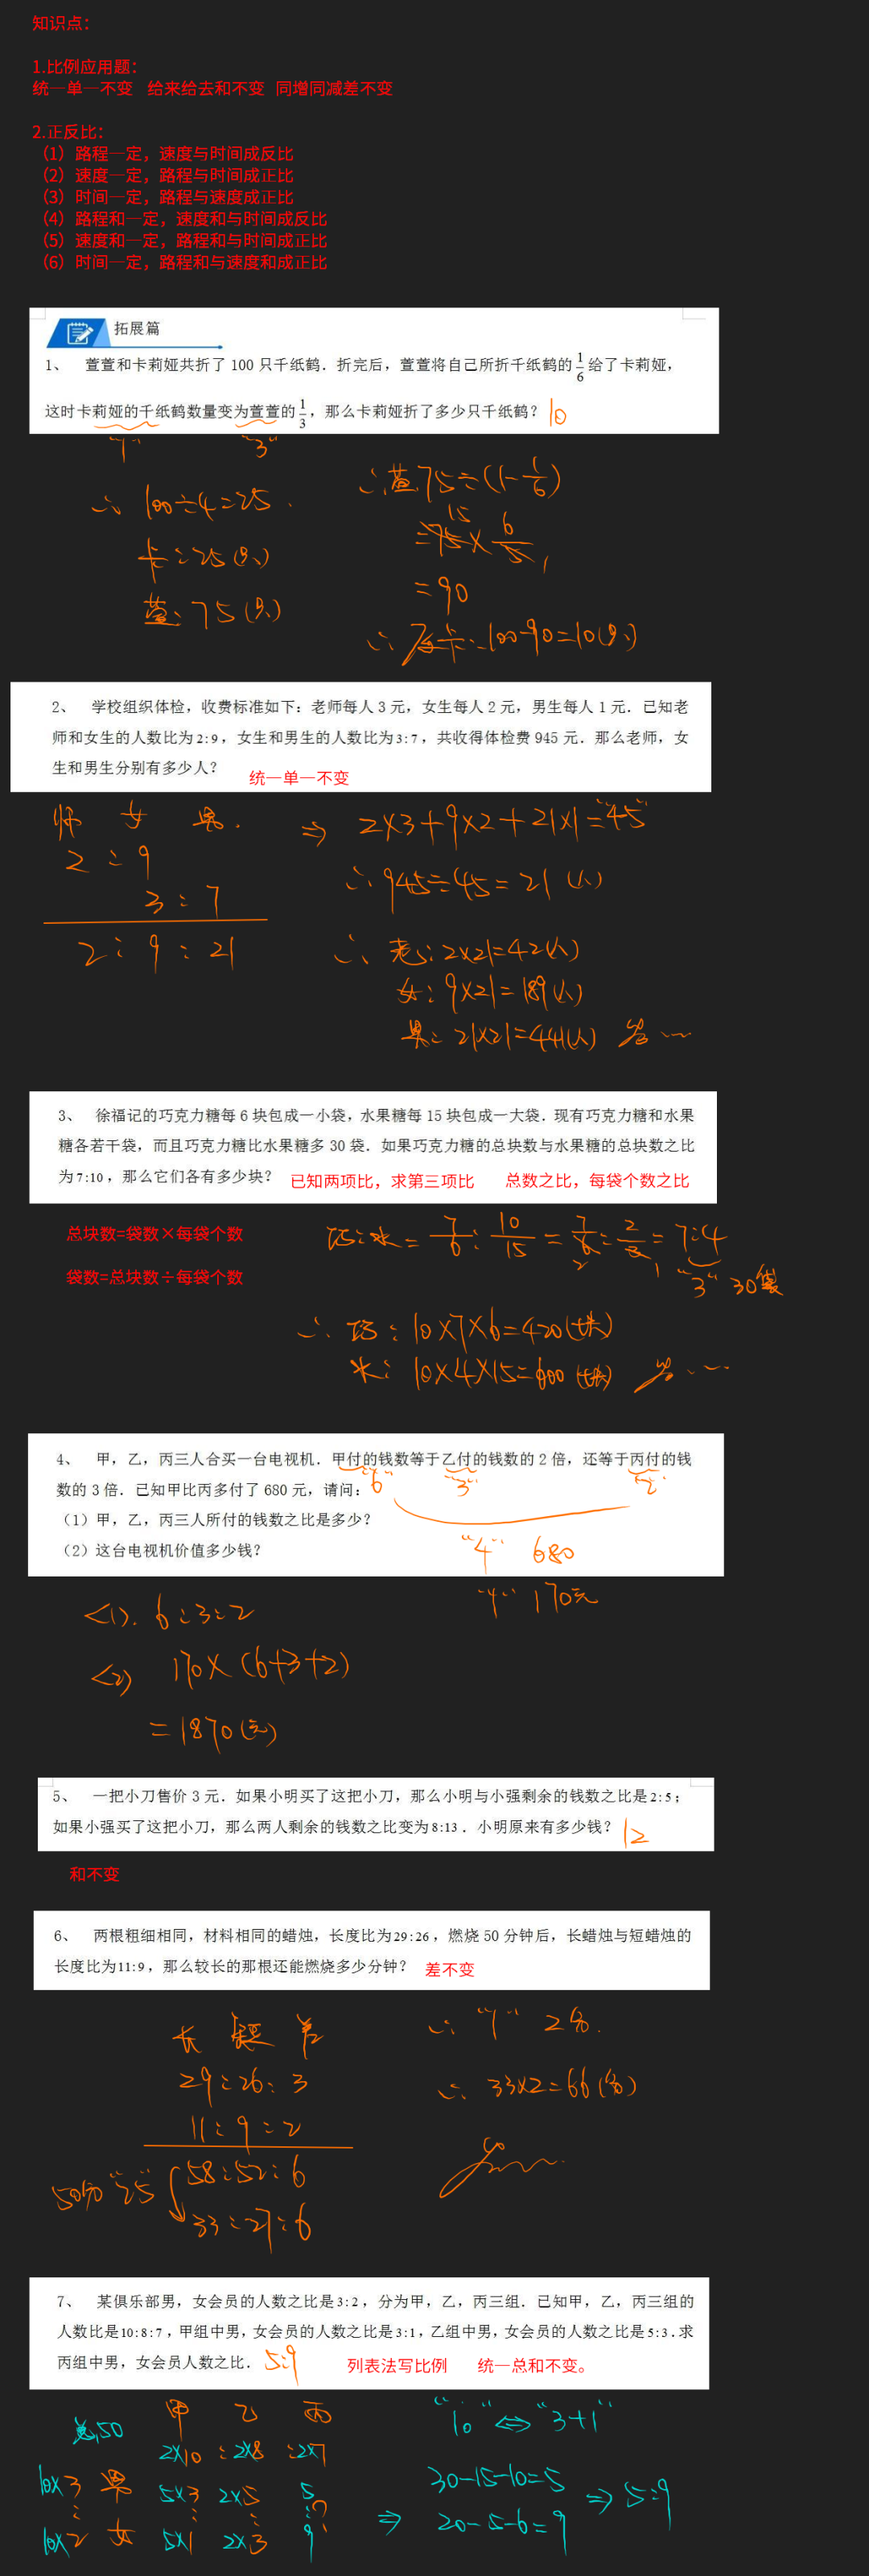 知识点：
1.比例应用题：
统一单一不变 给来给去和不变 同增同减差不变
2.正反比：
（1）路程一定，速度与时间成反比
（2）速度一定，路程与时间成正比
（3）时间一定，路程与速度成正比
（4）路程和一定，速度和与时间成反比
（5）速度和一定，路程和与时间成正比
（6）时间一定，路程和与速度和成正比
拓展篇
1、 萱萱和卡莉娅共折了 100 只千纸鹤．折完后，萱萱将自己所折千纸鹤的 1/6 给了卡莉娅，
这时卡莉娅的千纸鹤数量变为萱萱的 1/3，那么卡莉娅折了多少只千纸鹤？ 10
"1" "3"
∴ 100÷4=25
卡：25(只)
萱：75(只)
∴萱：75÷(1-1/6)
=75×6/5
=90
∴原卡：100-90=10(只)
2、 学校组织体检，收费标准如下：老师每人 3 元，女生每人 2 元，男生每人 1 元．已知老
师和女生的人数比为 2:9，女生和男生的人数比为 3:7，共收得体检费 945 元．那么老师，女
生和男生分别有多少人？ 统一单一不变
师 女 男
2：9
3：7
2：9：21
⇒ 2×3+9×2+21×1="45"
∴945÷45=21(人)
∴ 老：2×21=42(人)
女：9×21=189(人)
男：21×21=441(人) 答…
3、 徐福记的巧克力糖每 6 块包成一小袋，水果糖每 15 块包成一大袋．现有巧克力糖和水果
糖各若干袋，而且巧克力糖比水果糖多 30 袋．如果巧克力糖的总块数与水果糖的总块数之比
为 7:10，那么它们各有多少块？ 已知两项比，求第三项比 总数之比，每袋个数之比
总块数=袋数×每袋个数
袋数=总块数÷每袋个数
巧：水=7/6：10/15=7/6：2/3=7：4
"3" 30袋
∴ 巧：10×7×6=420(块)
水：10×4×15=600(块) 答…
4、 甲，乙，丙三人合买一台电视机．甲付的钱数等于乙付的钱数的 2 倍，还等于丙付的钱
数的 3 倍．已知甲比丙多付了 680 元，请问：
"6" "3" "2"
（1）甲，乙，丙三人所付的钱数之比是多少？
（2）这台电视机价值多少钱？
"4" 680
"1" 170元
<1>. 6：3：2
<2> 170×(6+3+2)
=1870(元)
5、 一把小刀售价 3 元．如果小明买了这把小刀，那么小明与小强剩余的钱数之比是 2:5；
如果小强买了这把小刀，那么两人剩余的钱数之比变为 8:13．小明原来有多少钱？ 12
和不变
6、 两根粗细相同，材料相同的蜡烛，长度比为 29:26，燃烧 50 分钟后，长蜡烛与短蜡烛的
长度比为 11:9，那么较长的那根还能燃烧多少分钟？ 差不变
长 短 差
29：26：3
11：9：2
50分 "25" 58：52：6
33：27：6
∴ "1" 2分.
∴ 33×2=66(分)
7、 某俱乐部男，女会员的人数之比是 3:2，分为甲，乙，丙三组．已知甲，乙，丙三组的
人数比是 10:8:7，甲组中男，女会员的人数之比是 3:1，乙组中男，女会员的人数之比是 5:3．求
丙组中男，女会员人数之比． 5:9 列表法写比例 统一总和不变。
总50 甲 乙 丙
2×10：2×8：2×7
10×3 男 5×3 2×5 5
： ： ： ：?
10×2 女 5×1 2×3 9
"10" ⇔ "3+1"
⇒ 30-15-10=5
20-5-6=9
⇒ 5:9